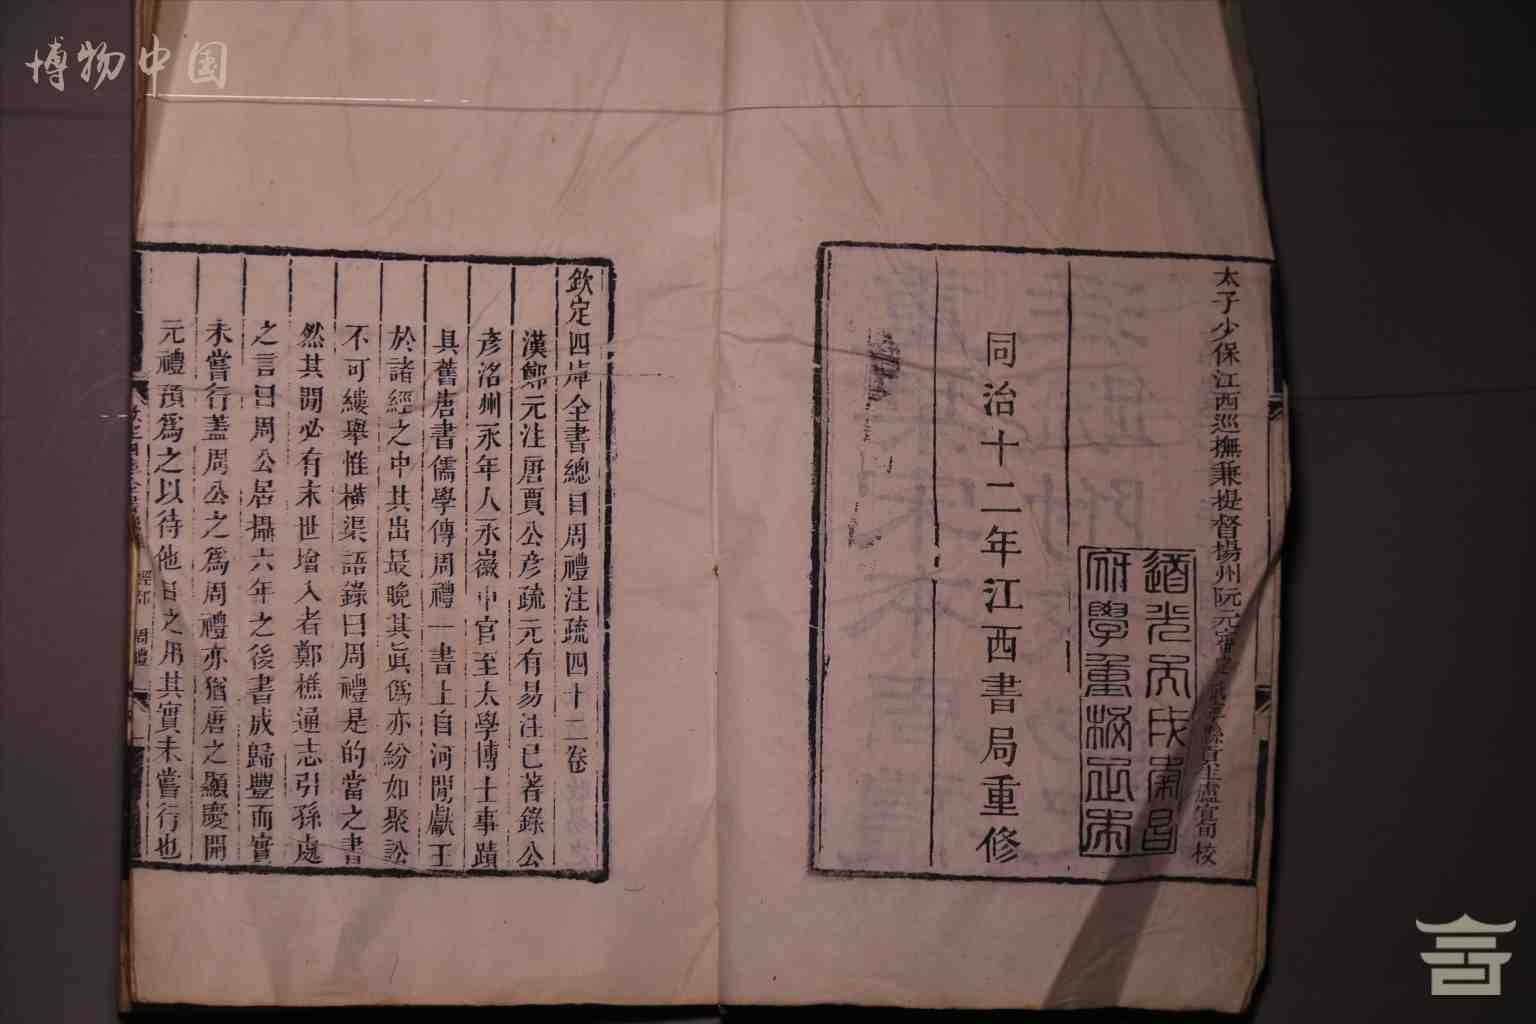 博物中国
太子少保江西巡撫兼提督揚州阮元
盧宣旬校
道光
南昌
府學重校
同治十二年江西書局重修
欽定四庫全書總目周禮注疏四十二卷
漢鄭元注唐賈公彥疏元有易注已著錄公
彥洺州永年人永徽中官至太學博士事蹟
具舊唐書儒學傳周禮一書上自河閒獻王
於諸經之中其出最晚其眞僞亦紛如聚訟
不可縷舉惟橫渠語錄曰周禮是的當之書
然其閒必有末世增入者鄭樵通志引孫處
之言曰周公居攝六年之後書成歸豐而實
未嘗行蓋周公之爲周禮亦猶唐之顯慶開
元禮預爲之以待他日之用其實未嘗行也
周禮